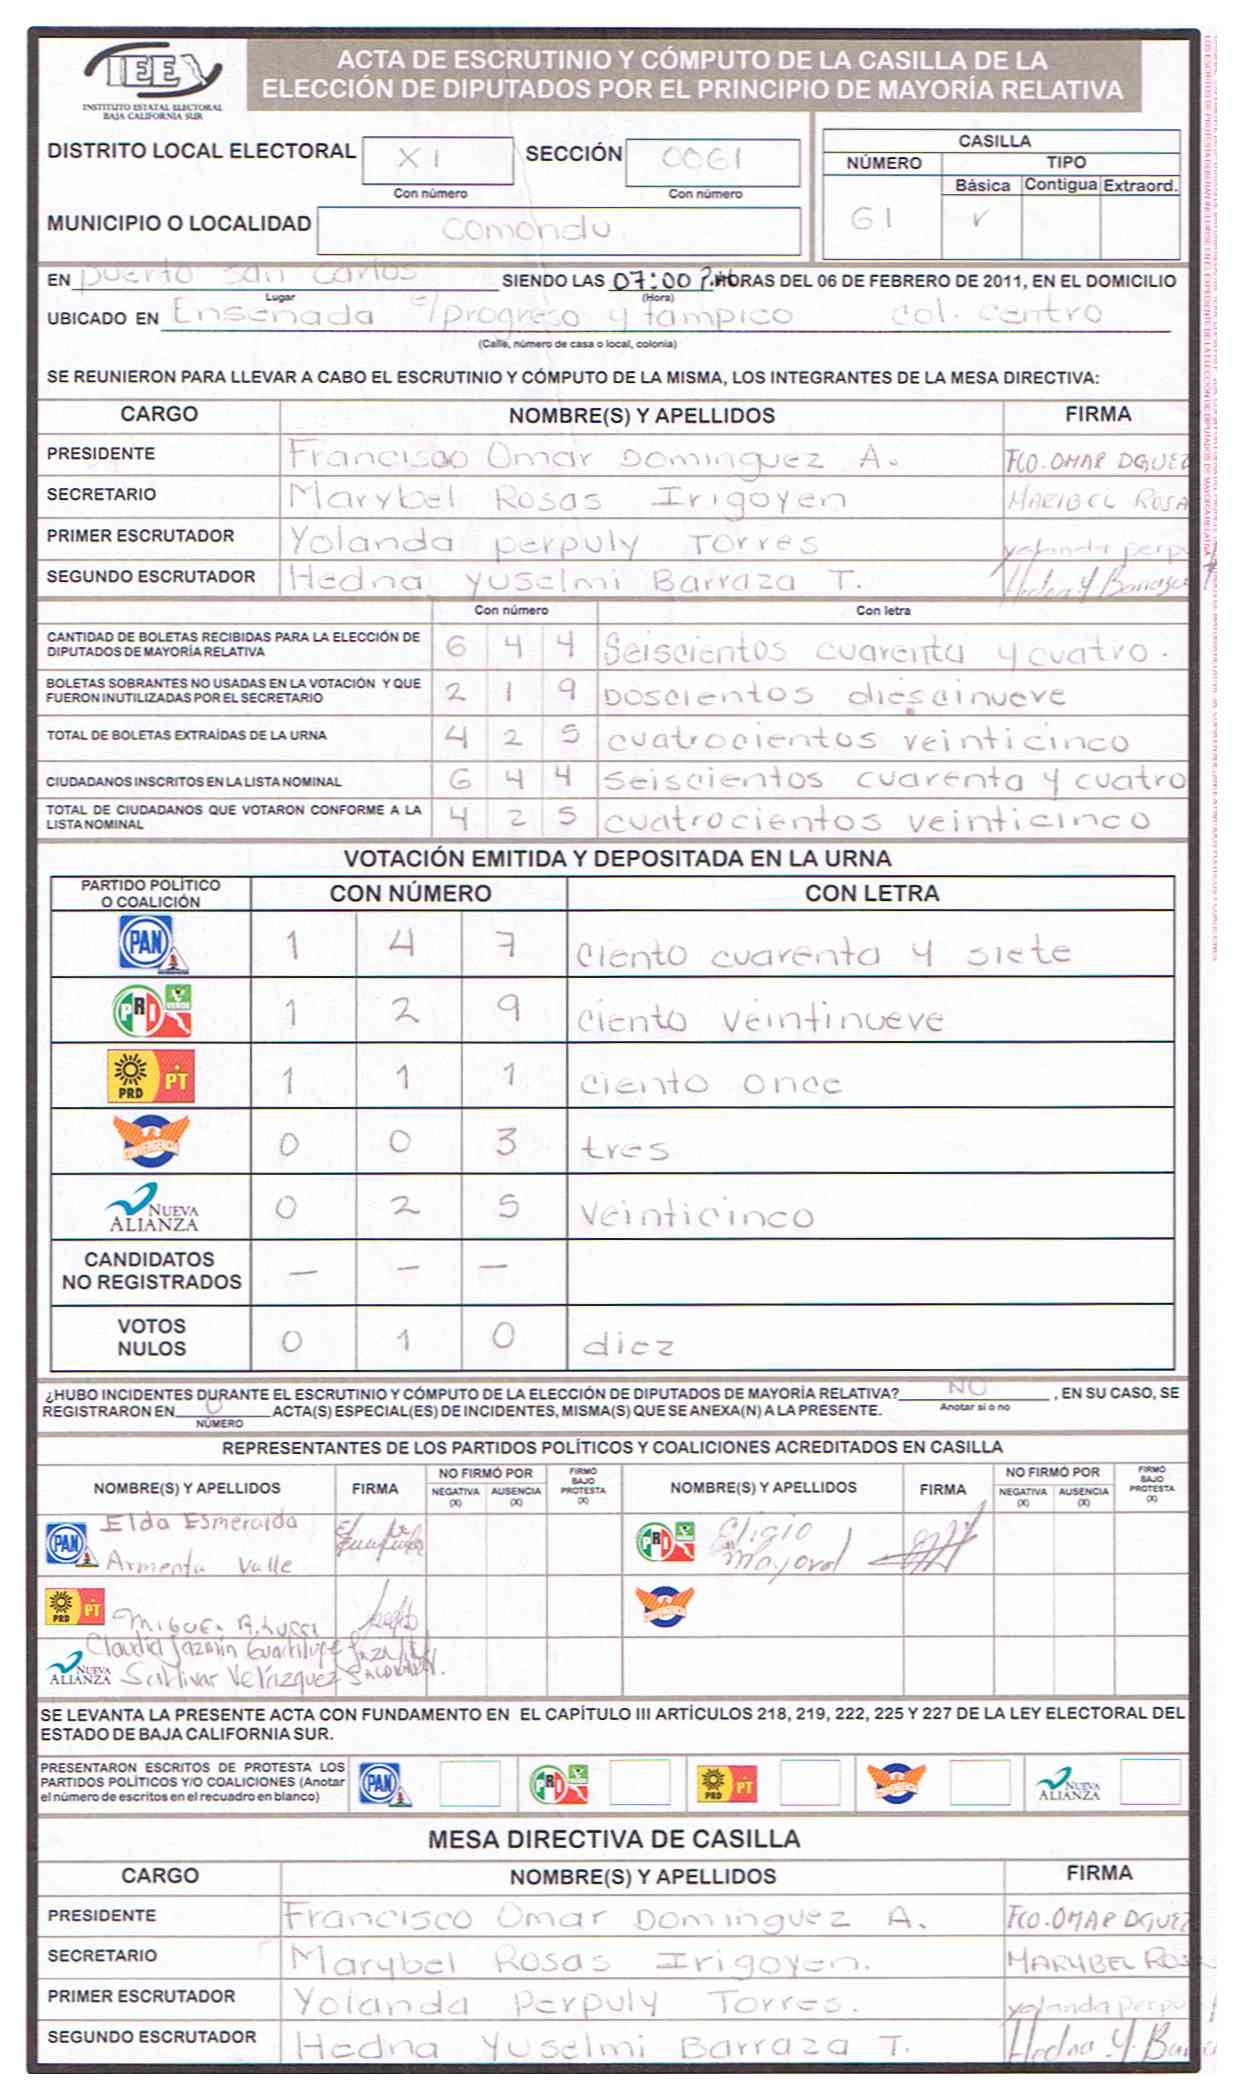 IEE
INSTITUTO ESTATAL ELECTORAL
BAJA CALIFORNIA SUR
ACTA DE ESCRUTINIO Y CÓMPUTO DE LA CASILLA DE LA
ELECCIÓN DE DIPUTADOS POR EL PRINCIPIO DE MAYORÍA RELATIVA
DISTRITO LOCAL ELECTORAL XI SECCIÓN 0061
Con número Con número
MUNICIPIO O LOCALIDAD comondu
CASILLA
NÚMERO TIPO
Básica Contigua Extraord.
61 ✓
EN puerto san carlos SIENDO LAS 07:00 P.M HORAS DEL 06 DE FEBRERO DE 2011, EN EL DOMICILIO
Lugar (Hora)
UBICADO EN Ensenada e/progreso y tampico col. centro
(Calle, número de casa o local, colonia)
SE REUNIERON PARA LLEVAR A CABO EL ESCRUTINIO Y CÓMPUTO DE LA MISMA, LOS INTEGRANTES DE LA MESA DIRECTIVA:
CARGO NOMBRE(S) Y APELLIDOS FIRMA
PRESIDENTE Francisco Omar Dominguez A. FCO. OMAR DGUEZ
SECRETARIO Marybel Rosas Irigoyen MARIBEL ROSA
PRIMER ESCRUTADOR Yolanda perpuly Torres yolanda perpu
SEGUNDO ESCRUTADOR Hedna Yuselmi Barraza T. Hedna Y Barraza
Con número Con letra
CANTIDAD DE BOLETAS RECIBIDAS PARA LA ELECCIÓN DE
DIPUTADOS DE MAYORÍA RELATIVA 6 4 4 Seiscientos cuarenta y cuatro.
BOLETAS SOBRANTES NO USADAS EN LA VOTACIÓN Y QUE
FUERON INUTILIZADAS POR EL SECRETARIO 2 1 9 Doscientos diescinueve
TOTAL DE BOLETAS EXTRAÍDAS DE LA URNA 4 2 5 cuatrocientos veinticinco
CIUDADANOS INSCRITOS EN LA LISTA NOMINAL 6 4 4 seiscientos cuarenta y cuatro
TOTAL DE CIUDADANOS QUE VOTARON CONFORME A LA
LISTA NOMINAL 4 2 5 cuatrocientos veinticinco
VOTACIÓN EMITIDA Y DEPOSITADA EN LA URNA
PARTIDO POLÍTICO
O COALICIÓN CON NÚMERO CON LETRA
PAN 1 4 7 ciento cuarenta y siete
PRI VERDE 1 2 9 ciento veintinueve
PRD PT 1 1 1 ciento once
CONVERGENCIA 0 0 3 tres
NUEVA ALIANZA 0 2 5 veinticinco
CANDIDATOS
NO REGISTRADOS — — —
VOTOS
NULOS 0 1 0 diez
¿HUBO INCIDENTES DURANTE EL ESCRUTINIO Y CÓMPUTO DE LA ELECCIÓN DE DIPUTADOS DE MAYORÍA RELATIVA? NO , EN SU CASO, SE
REGISTRARON EN 0 ACTA(S) ESPECIAL(ES) DE INCIDENTES, MISMA(S) QUE SE ANEXA(N) A LA PRESENTE. Anotar si o no
NÚMERO
REPRESENTANTES DE LOS PARTIDOS POLÍTICOS Y COALICIONES ACREDITADOS EN CASILLA
NOMBRE(S) Y APELLIDOS FIRMA NO FIRMÓ POR NEGATIVA (X) AUSENCIA (X) FIRMÓ BAJO PROTESTA (X) NOMBRE(S) Y APELLIDOS FIRMA NO FIRMÓ POR NEGATIVA (X) AUSENCIA (X) FIRMÓ BAJO PROTESTA (X)
PAN Elda Esmeralda PRI Eligio
Armenta Valle Mayoral
PRD PT Miguel A. Lucci CONVERGENCIA
Claudia Jazmin Guadalupe
NUEVA ALIANZA Saldivar Velázquez
SE LEVANTA LA PRESENTE ACTA CON FUNDAMENTO EN EL CAPÍTULO III ARTÍCULOS 218, 219, 222, 225 Y 227 DE LA LEY ELECTORAL DEL
ESTADO DE BAJA CALIFORNIA SUR.
PRESENTARON ESCRITOS DE PROTESTA LOS
PARTIDOS POLÍTICOS Y/O COALICIONES (Anotar
el número de escritos en el recuadro en blanco) PAN PRI PRD PT CONVERGENCIA NUEVA ALIANZA
MESA DIRECTIVA DE CASILLA
CARGO NOMBRE(S) Y APELLIDOS FIRMA
PRESIDENTE Francisco Omar Dominguez A. FCO. OMAR DGUEZ
SECRETARIO Marybel Rosas Irigoyen. MARYBEL ROS
PRIMER ESCRUTADOR Yolanda Perpuly Torres. yolanda perpu
SEGUNDO ESCRUTADOR Hedna Yuselmi Barraza T. Hedna Y. Barra